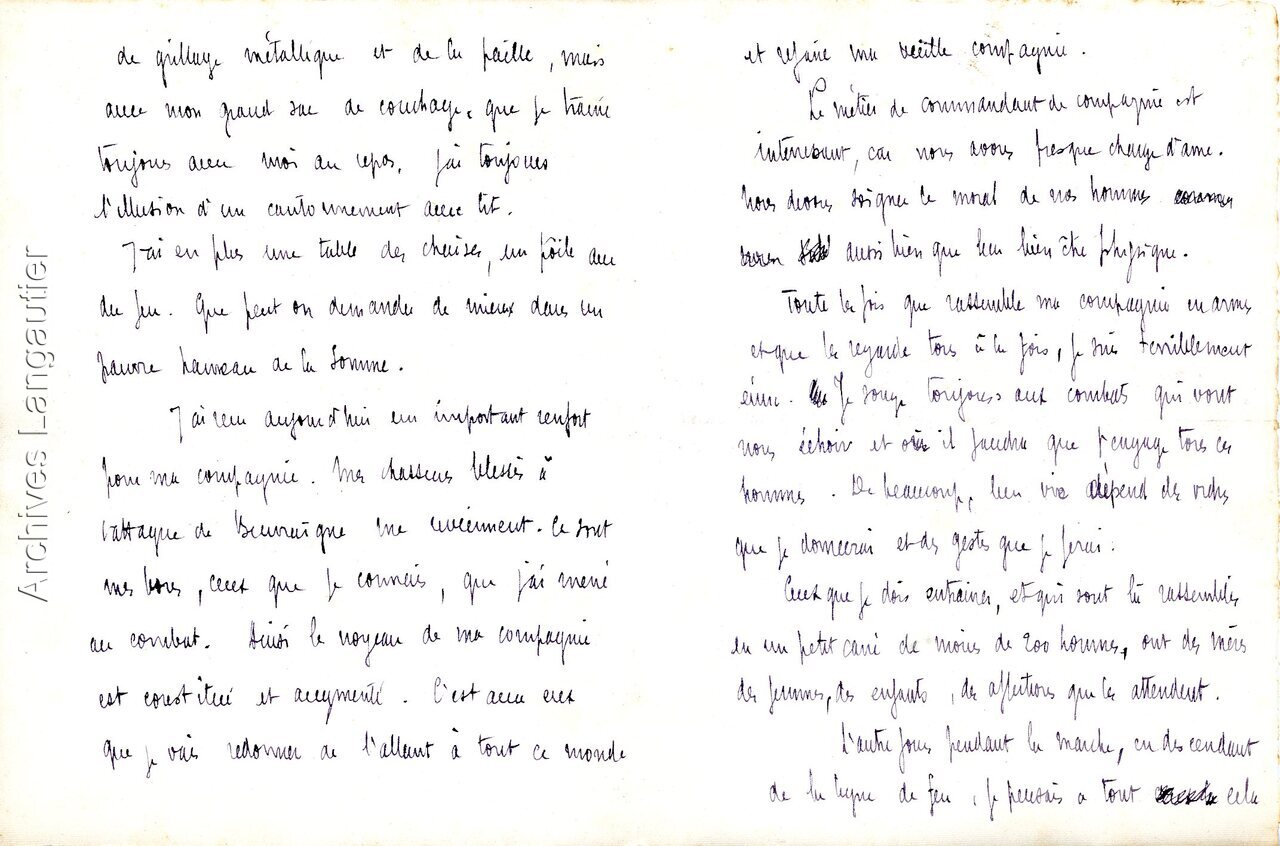 de grillage métallique et de la paille, mais
avec mon grand sac de couchage, que je traine
toujours avec moi au repos, j'ai toujours
l'illusion d'un cantonnement avec lit.
J'ai en plus une table des chaises, un poële avec
du feu. Que peut on demander de mieux dans un
pauvre hameau de la Somme.
J'ai reçu aujourd'hui un important renfort
pour ma compagnie. Mes chasseurs blessés à
l'attaque de Beuvraigne me reviennent. Ce sont
mes bons, ceux que je connais, que j'ai mené
au combat. Ainsi le noyeau de ma compagnie
est constitué et augmenté. C'est avec eux
que je vais redonner de l'allant à tout ce monde
et refaire ma vieille compagnie.
Le métier de commandant de compagnie est
intéressant, car nous avons presque charge d'ame.
Nous devons soigner le moral de nos hommes
aussi bien que leur bien être physique.
Toute les fois que rassemble ma compagnie en armes
et que les regarde tous à la fois, je suis terriblement
ému. Je songe toujours aux combats qui vont
nous échoir et où il faudra que j'engage tous ces
hommes. De beaucoup, leur vie dépend des ordres
que je donnerai et des gestes que je ferai.
Ceux que je dois entrainer, et qui sont là rassemblés
en un petit carré de moins de 200 hommes, ont des mères
des femmes, des enfants, des affections que les attendent.
L'autre jour pendant la marche, en descendant
de la ligne de feu, je pensais a tout cela
Archives Langautier